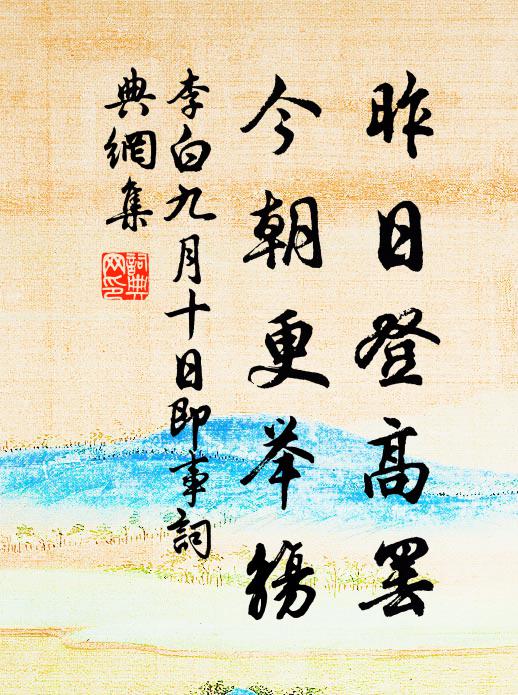 昨日登高罢
今朝更举觞
李白九月十日即事詞
典網集
詞典
网印